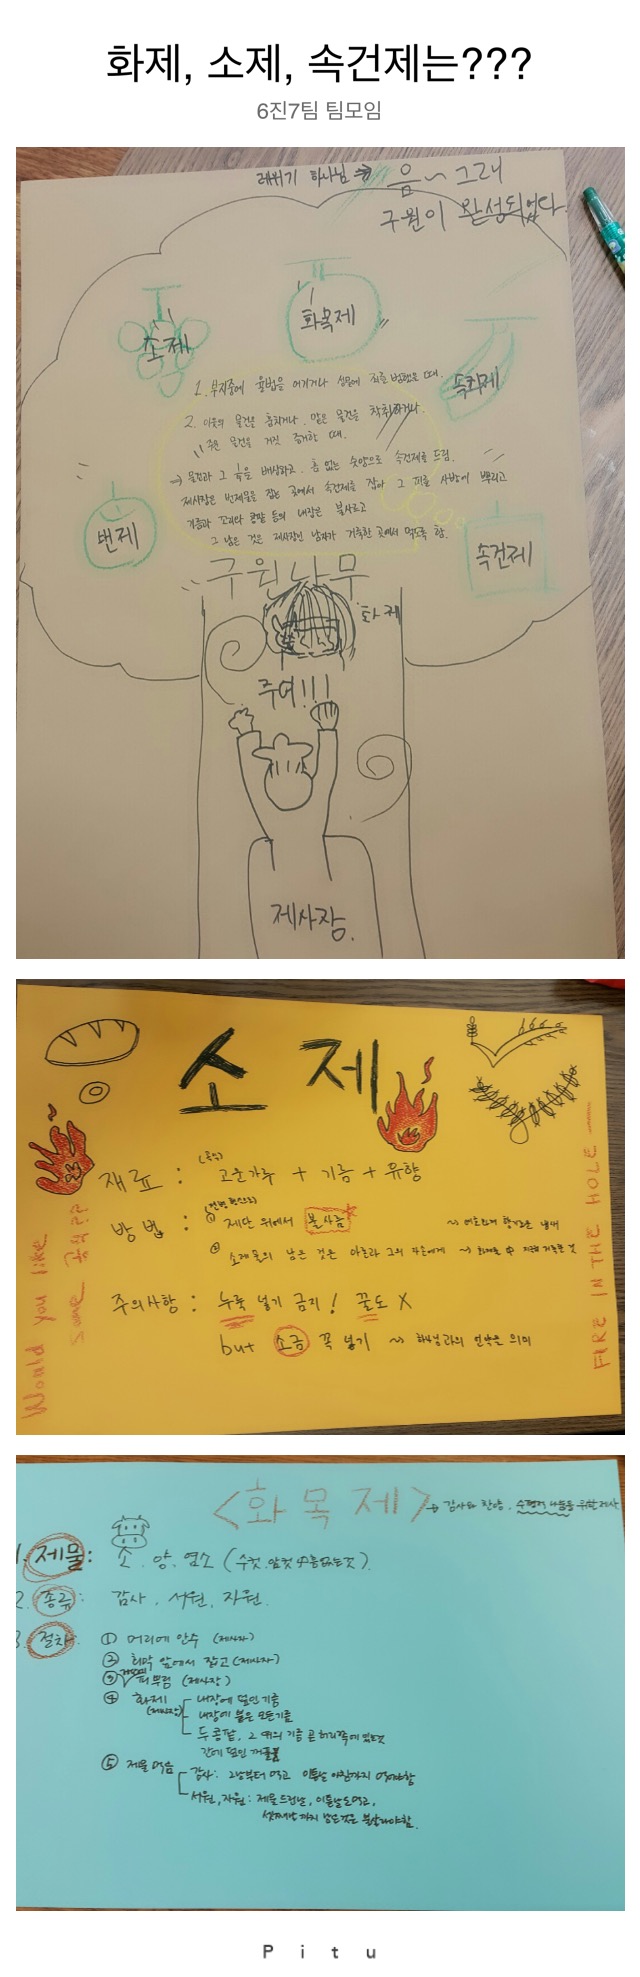 화제, 소제, 속건제는???
6진7팀 팀모임
레위기 하나님 ⇒ 음~ 그래
구원이 완성되었다.
소제
화목제
속죄제
번제
속건제
1. 부지중에 율법을 어기거나 성물에 죄를 범했을 때.
2. 이웃의 물건을 훔치거나, 맡은 물건을 착취하거나,
주운 물건을 거짓 증거할 때.
→ 물건과 그 ⅕을 배상하고, 흠 없는 숫양으로 속건제를 드림.
제사장은 번제물을 잡는 곳에서 속건제를 잡아 그 피를 사방에 뿌리고
기름과 꼬리와 콩팥 등의 내장은 불사르고
그 남은 것은 제사장인 남자가 거룩한 곳에서 먹도록 함.
구원나무
화제
주여!!!
제사장.
소제
재료 : 고운가루 + 기름 + 유향
방법 : ① 제단 위에서 불사름
② 소제물의 남은 것은 아론과 그의 자손에게
주의사항 : 누룩 넣기 금지! 꿀도 X
but 소금 꼭 넣기 ~> 하나님과의 언약을 의미
Would you like
some
FIRE IN THE HOLE
<화목제> → 감사와 찬양, 수평적 나눔을 위한 제사
1. 제물: 소, 양, 염소 (수컷, 암컷 中 흠 없는 것).
2. 종류: 감사, 서원, 자원.
3. 절차: ① 머리에 안수 (제사자)
② 회막 앞에서 잡고 (제사자)
③ 피뿌림 (제사장)
④ 화제 (제사장)
내장에 덮인 기름
내장에 붙은 모든 기름
두 콩팥, 그 위의 기름 곧 허리쪽에 있는것
간에 덮인 꺼풀
⑤ 제물 먹음
감사:
이튿날 아침까지
서원, 자원: 제물 드린날, 이튿날도 먹고,
셋째날까지 남은것은 불살라야함.
Pitu